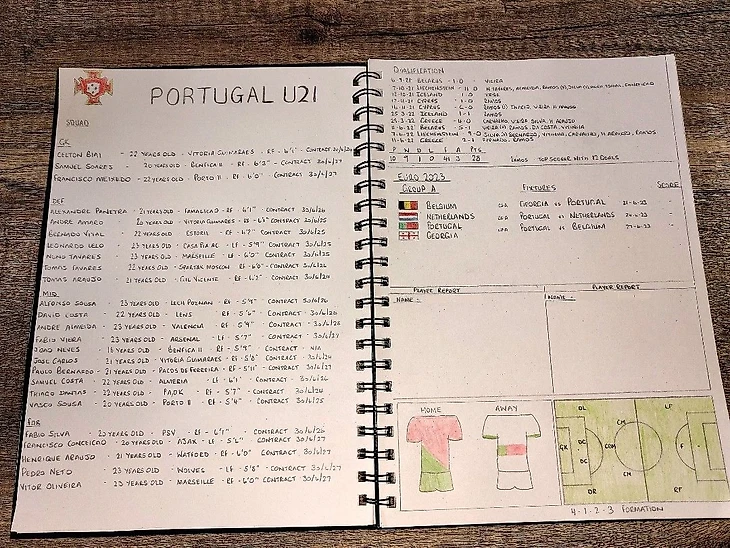 PORTUGAL U21
SQUAD
GK
CELTON BIAI - 22 YEARS OLD - VITORIA GUIMARAES - RF - 6'4" - CONTRACT 30/6/26
SAMUEL SOARES - 20 YEARS OLD - BENFICA II - RF - 6'2" - CONTRACT 30/6/27
FRANCISCO MEIXEDO - 22 YEARS OLD - PORTO II - RF - 6'2" - CONTRACT 30/6/27
DEF
ALEXANDRE PENETRA - 21 YEARS OLD - FAMALICAO - RF - 6'1" - CONTRACT 30/6/26
ANDRE AMARO - 20 YEARS OLD - VITORIA GUIMARES - RF - CONTRACT 30/6/25
BERNADO VITAL - 22 YEARS OLD - ESTORIL - CF - 6'2" - CONTRACT 30/6/25
LEONARDO LELO - 23 YEARS OLD - CASA PIA AC - LF - 5'9" - CONTRACT 30/6/25
NUNO TAVARES - 23 YEARS OLD - MARSEILLE - LF - 6'0" - CONTRACT 30/6/25
TOMAS TAVARES - 22 YEARS OLD - SPARTAK MOSCOW - RF - 6'0" - CONTRACT 30/6/26
TOMAS ARAUJO - 21 YEARS OLD - GIL VICENTE - RF - 6'2" - CONTRACT
MID
ALFONSO SOUSA - 23 YEARS OLD - LECH POZNAN - RF - 5'9" - CONTRACT 30/6/26
DAVID COSTA - 22 YEARS OLD - LENS - RF - 5'6" - CONTRACT 30/6/26
ANDRE ALMEIDA - 23 YEARS OLD - VALENCIA - RF - 5'9" - CONTRACT
FABIO VIEIRA - 23 YEARS OLD - ARSENAL - LF - 5'7" - CONTRACT 30/6/27
JOAO NEVES - 18 YEARS OLD - BENFICA II - RF - 5'8" - CONTRACT N/A
JOSE CARLOS - 21 YEARS OLD - VITORIA GUIMARAES - RF - 5'10" - CONTRACT 30/6/24
PAULO BERNARDO - 21 YEARS OLD - PACOS DE FERREIRA - RF - 5'11" - CONTRACT 30/6/27
SAMUEL COSTA - 22 YEARS OLD - ALMERIA - LF - 6'1" - CONTRACT 30/6/26
THIAGO DANTAS - 22 YEARS OLD - PAOK - RF - 5'7" - CONTRACT 30/6/24
VASCO SOUSA - 20 YEARS OLD - PORTO II - RF - 5'4" - CONTRACT 30/6/25
FOR
FABIO SILVA - 20 YEARS OLD - PSV - RF - 6'1" - CONTRACT 30/6/26
FRANCISCO CONCEICAO - 20 YEARS OLD - AJAX - LF - 5'6" - CONTRACT 30/6/27
HENRIQUE ARAUJO - 21 YEARS OLD - WATFORD - RF - 6'0" - CONTRACT 30/6/27
PEDRO NETO - 23 YEARS OLD - WOLVES - LF - 5'8" - CONTRACT 30/6/27
VITOR OLIVEIRA - 23 YEARS OLD - MARSEILLE - RF - 6'0" CONTRACT 30/6/27
QUALIFICATION
6-9-21 BELARUS - 1-0 - VIEIRA
7-10-21 LIECHENSTEIN - 11-0
12-10-21 ICELAND 1-0 -
12-11-21 CYPRUS 1-0 - RAMOS
16-11-21 CYPRUS 6-0
25-3-22 ICELAND 1-1 RAMOS
GREECE 4-0 CARVALHO, VIEIRA, SILVA, H ARAUJO
BELARUS 5-1 VIEIRA RAMOS, DA COSTA, VITINHA
LIECHENSTEIN 9-0
11-6-22 GREECE 2-1
P W D L F A PTS
10 9 1 0 41 3 28 RAMOS TOP SCORER WITH 12 GOALS
EURO 2023
GROUP A FIXTURES SCORE
BELGIUM GA GEORGIA VS PORTUGAL 21-6-23
NETHERLANDS GA PORTUGAL VS NETHERLANDS 24-6-23
PORTUGAL GA PORTUGAL VS BELGIUM 27-6-23
GEORGIA
PLAYER REPORT PLAYER REPORT
NAME:- NAME:-
HOME AWAY
DL LF
CM
GK DC CDM F
DC
CM
DR RF
4-1-2-3 FORMATION